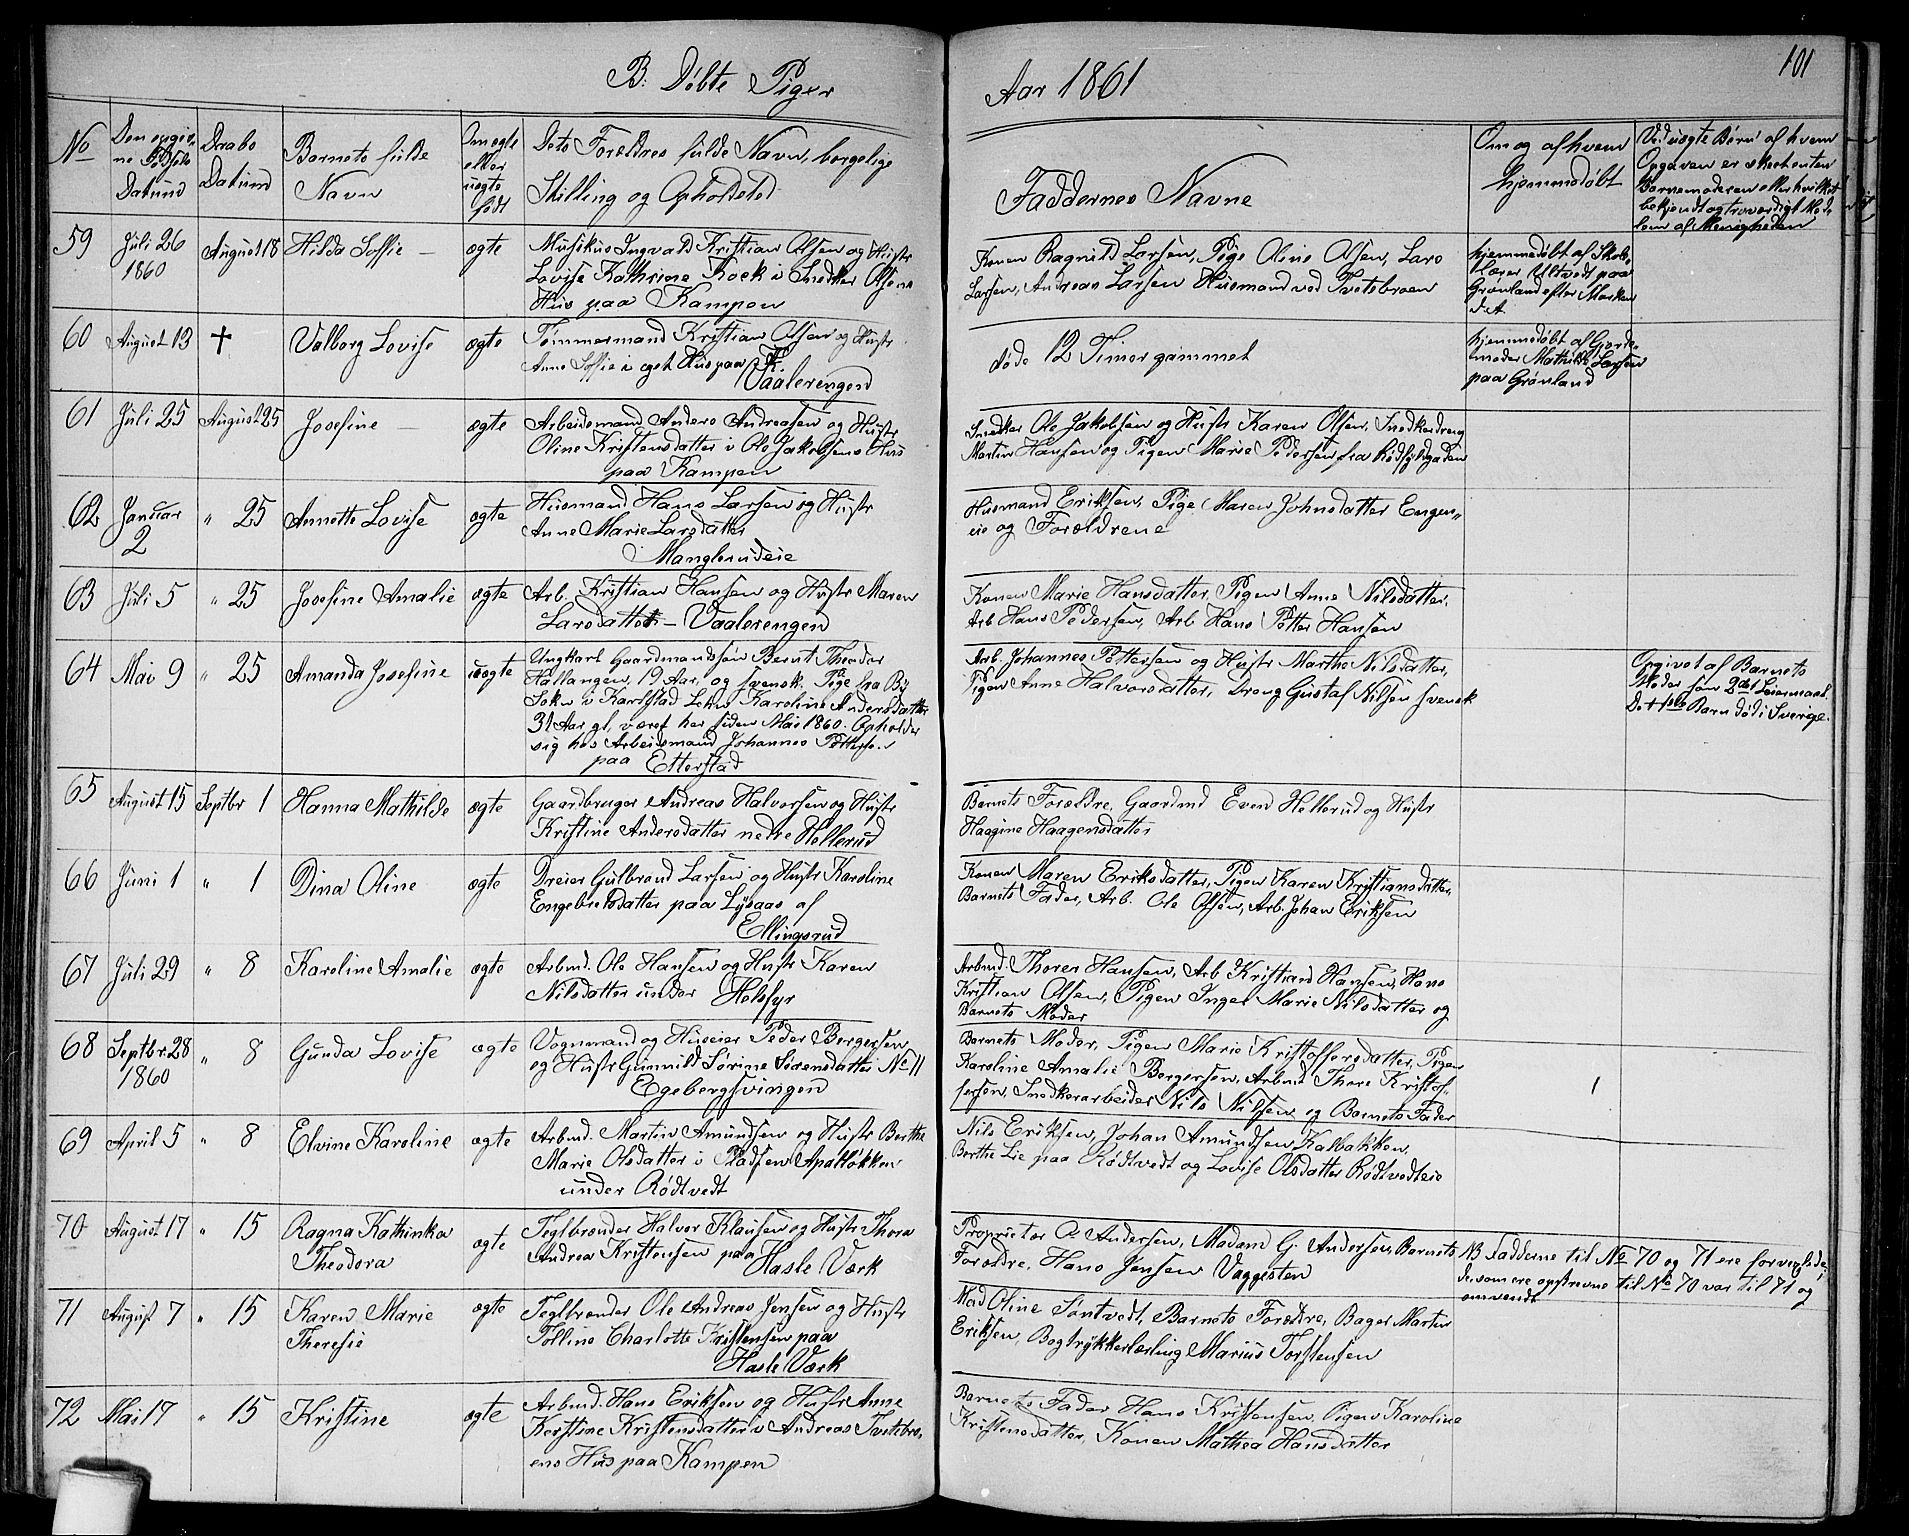 B. Døbte Piger
Aar 1861
101
No
Den opgiv-
ne Fødsels
Datum
Daabs
Datum
Barnets fulde
Navn
Om ægte
eller
uægte
født
Dets Forældres fulde Navn, borgelige
Stilling og Opholdsted
Faddernes Navne
Om og af hvem
hjemmedøbt
Ved uægte Børn af hvem
Opgaven er skeet enten
Barnemoderen eller hvilket
bekjendt og troværdigt Med-
lem af Menigheden
59
Juli 26
1860
August 18
Hilda Soffie —
ægte
Musikus Ingvald Kristian Olsen og Hustr
Lovise Kathrine Kock i Snedker Olsens
Hus paa Kampen
Konen Ragnild Larsen, Pige Oline Olsen, Lars
Larsen, Andreas Larsen Husmand ved Tvetsbroen
hjemmedøbt af Skole-
lærer Ultvedt paa
Grønland efter Marken
d. A
60
August 13
+
Valborg Lovise
ægte
Tømmermand Kristian Olsen og Hustr
Anne Soffie i eget Hus paa
Vaalerengen
døde 12 Timer gammel
hjemmedøbt af Gjorde-
moder Mathilde Larsen
paa Grønland
61
Juli 25
August 25
Josefine —
ægte
Arbeidsmand Anders Andreasen og Hustr
Oline Kristensdatter i Ole Jakobsens Hus
paa Kampen
Snedker Ole Jakobsen og Hustr Karen Olsen, Snedkerdreng
Martin Hansen og Pigen Marie Pedersen fra Rødfyldgaden
62
Januar
2
" 25
Annette Lovise
ægte
Husmand Hans Larsen og Hustr
Anne Marie Larsdatter
i Manglerudeie
Husmand Eriksen, Pige Maren Johnsdatter Engen-
eie og Forældrene
63
Juli 5
" 25
Josefine Amalie
ægte
Arb. Kristian Hansen og Hustr Maren
Larsdatter — Vaalerengen
Konen Marie Hansdatter, Pigen Anne Nilsdatter,
Arb Hans Pedersen, Arb Hans Petter Hansen
64
Mai 9
" 25
Amanda Josefine
uægte
Ungkarl Gaardmandssøn Bernt Theodor
Hallangen, 19 Aar, og svensk Pige fra By
Sokn i Karlstad Lehn Karoline Andersdatter
31 Aar gl, været her siden Mai 1860. Opholder
sig hos Arbeidsmand Johannes Petterse.
paa Etterstad
Arb. Johannes Pettersen og Hustr Marthe Nilsdatter,
Pigen Anne Halvorsdatter, Dreng Gustaf Nilsen svensk
Opgivet af Barnets
Moder som 2det Leiermaal
Det 1ste Barn død i Sverige.
65
August 15
Septbr 1
Hanna Mathilde
ægte
Gaardbruger Andreas Halvorsen og Hustr
Kristine Andersdatter nedre Hellerud
Barnets Forældre, Gaardmd Even Hellerud og Hustr
Haagine Haagensdatter
66
Juni 1
" 1
Dina Oline
ægte
Dreier Gulbrand Larsen og Hustr Karoline
Engebretsdatter paa Lysaas af
Ellingsrud
Konen Maren Eriksdatter, Pigen Karen Kristiansdatter,
Barnets Fader, Arb. Ole Olsen, Arb. Johan Eriksen
67
Juli 29
" 8
Karoline Amalie
ægte
Arbmd. Ole Hansen og Hustr Karen
Nilsdatter under Helsfyr
Arbmd. Thorer Hansen, Arb Kristian Hansen, Hans
Kristian Olsen, Pigen Inger Marie Nilsdatter og
Barnets Moder
68
Septbr. 28
1860
" 8
Gunda Lovise
ægte
Vognmand og Huseier Peder Bergersen
og Hustr Gunnild Sørine Sørensdatter No 11
Egebergsvingen
Barnets Moder, Pigen Marie Kristoffersdatter, Pigen
Karoline Amalie Bergersen, Arbmd Thore Kristof-
fersen, Snedkerarbeider Nils Nilsen og Barnets Fader
69
April 5
" 8
Elvine Karoline
ægte
Arbmd. Martin Amundsen og Hustr Berthe
Marie Olsdatter i Pladsen Apalløkken
under Rødtvedt
Nils Eriksen, Johan Amundsen Kalbakken,
Berthe Lie paa Rødtvedt og Lovise Olsdatter Rødtvedteie
70
August 17
" 15
Ragna Kathinka
Theodora
ægte
Teglbrænder Halvor Klausen og Hustr Thora
Andrea Kristensen paa Hasle Værk
Proprietær O. Andersen, Madam G. Andersen, Barnets
Forældre, Hans Jensen Vaggesten
NB Fadderne til No 70 og 71 ere forvexlede;
de, som ere opskrevne til No 70 var til 71 og
omvendt
71
August 7
" 15
Karen Marie
Theresie
ægte
Teglbrænder Ole Andreas Jensen og Hustr
Polline Charlotte Kristensen paa
Hasle Værk
Mad Oline Søntvedt, Barnets Forældre, Bager Martin
Eriksen, Bogtrykkerlærling Marius Torstensen
72
Mai 17
" 15
Kristine
ægte
Arbmd. Hans Eriksen og Hustr Anne
Kerstine Kristensdatter i Andreas Tvetsbro-
ens Hus paa Kampen
Barnets Fader Hans Kristensen, Pigen Karoline
Kristensdatter, Konen Mathea Hansdatter